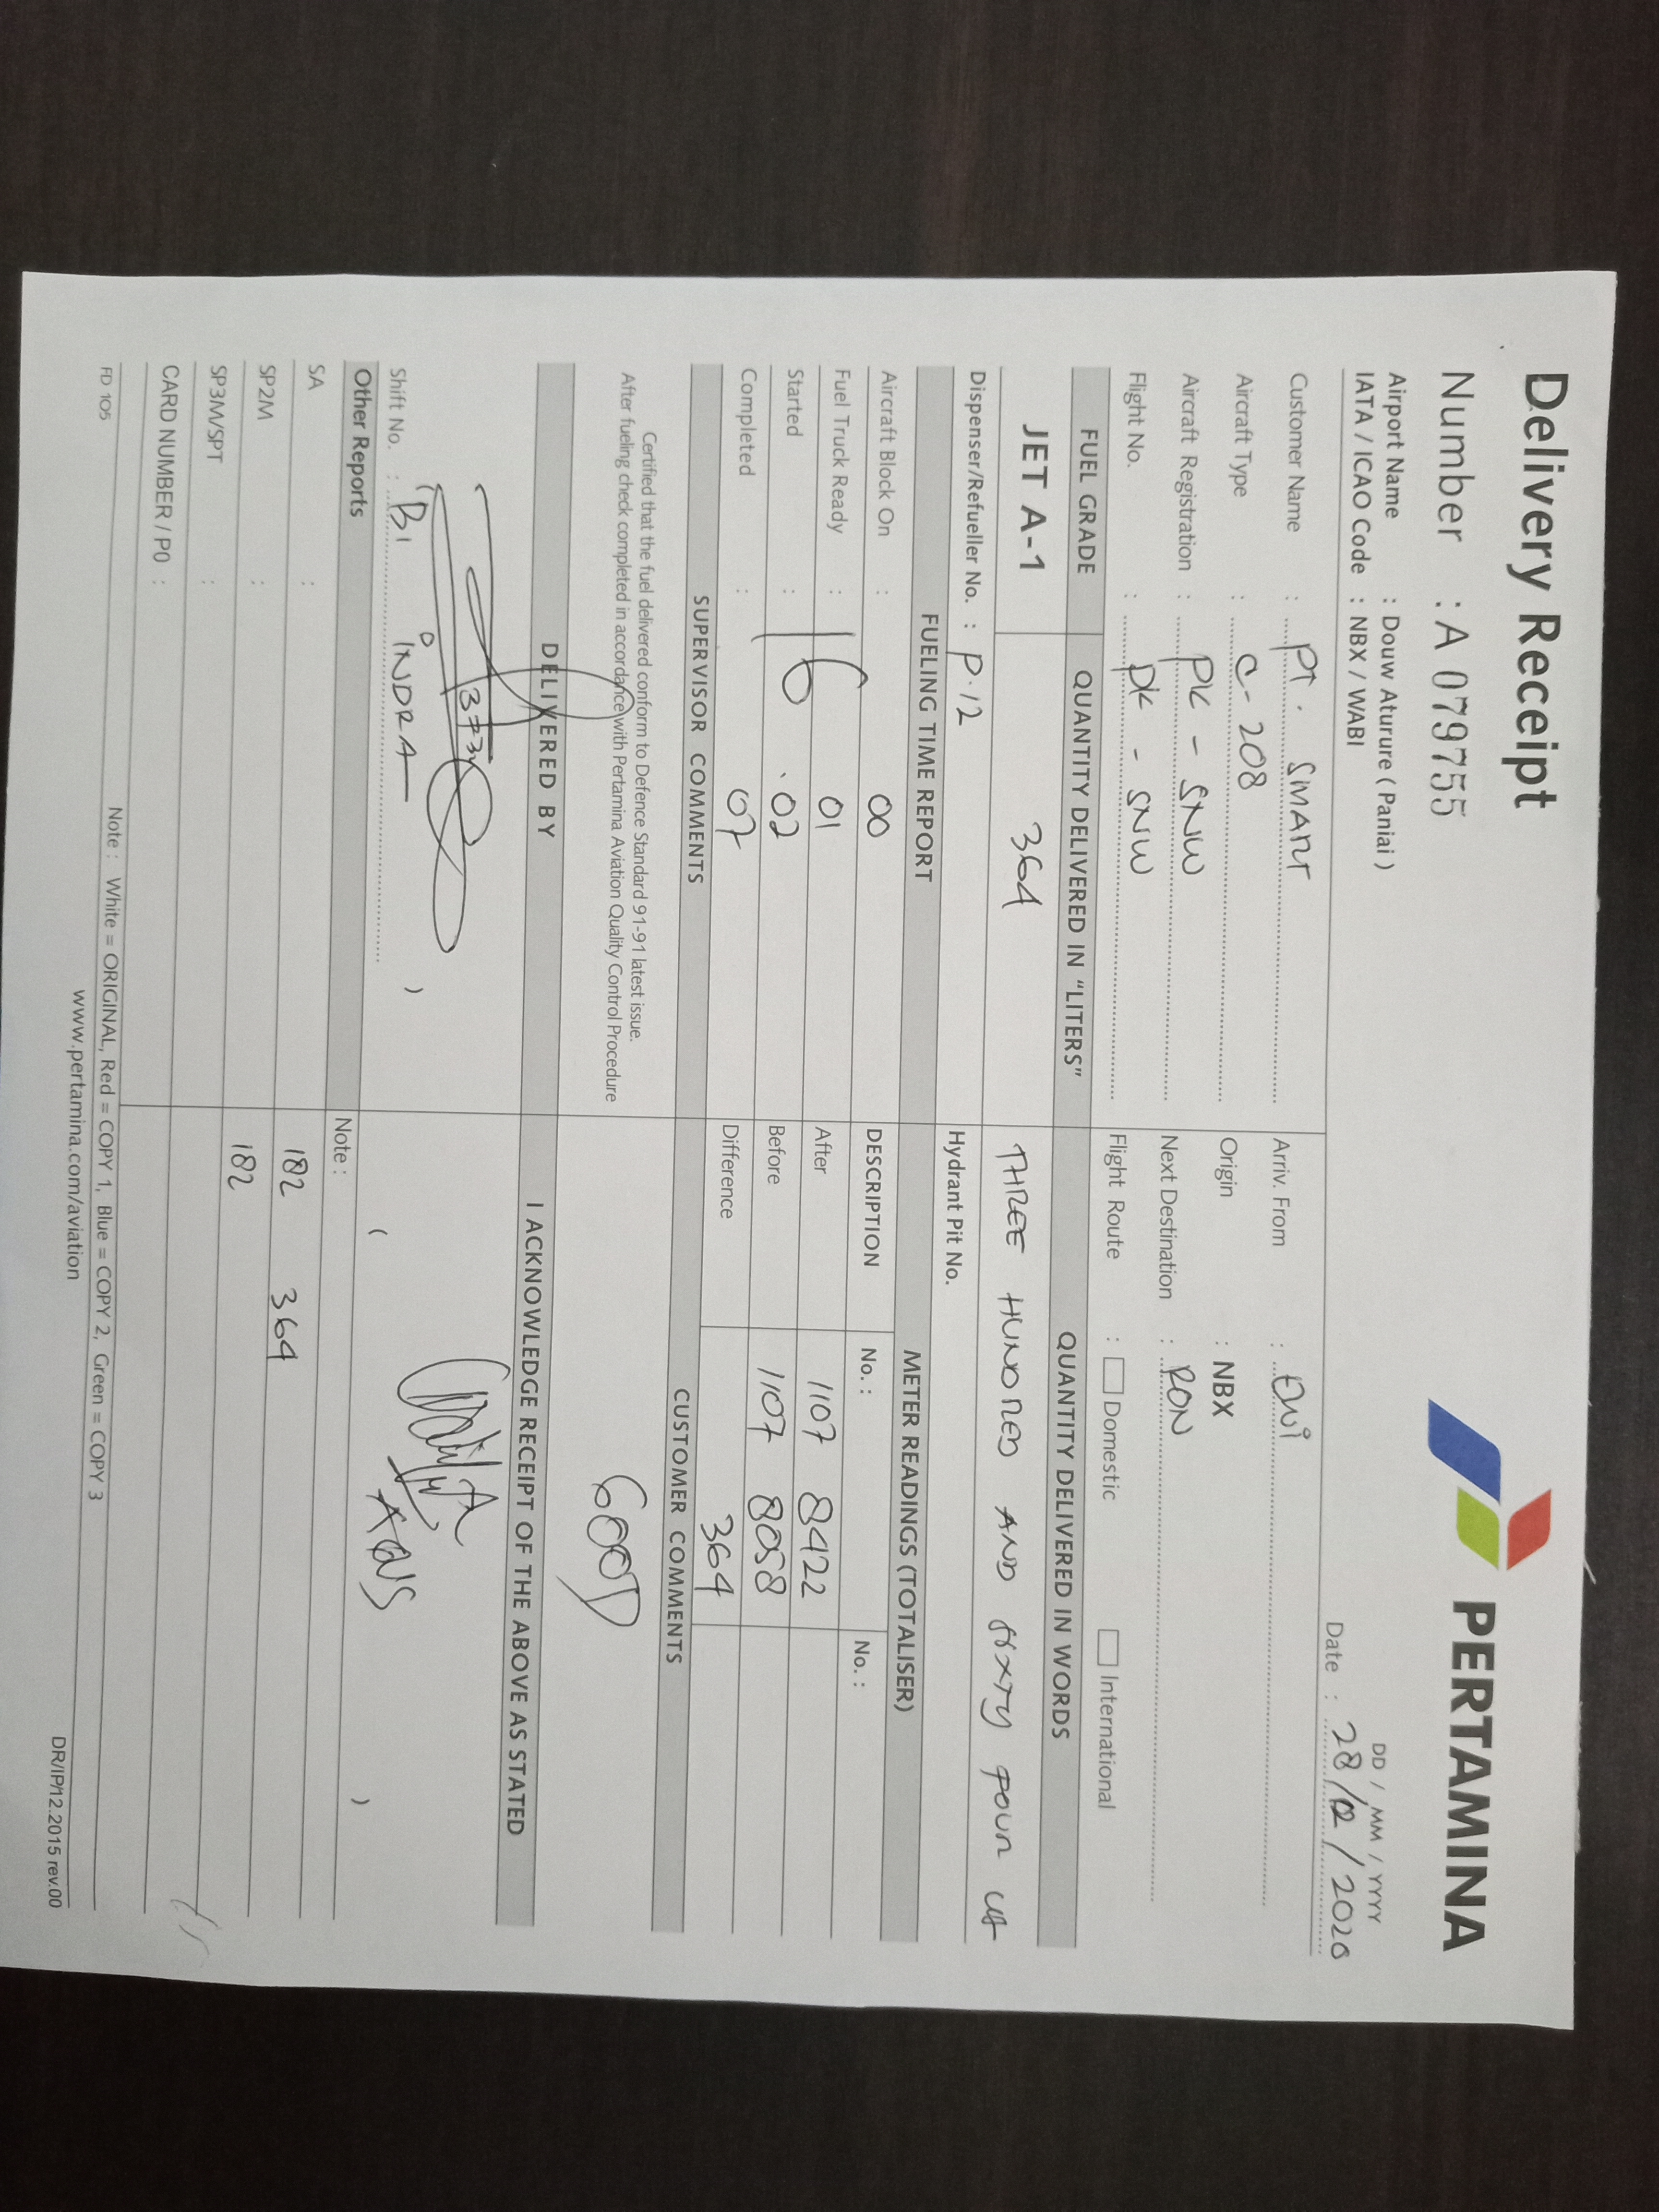 Delivery Receipt
PERTAMINA
Number : A 079755
DD / MM / YYYY
Airport Name : Douw Aturure ( Paniai )
IATA / ICAO Code : NBX / WABI
Date : 28/12/2020
Customer Name : PT. SMART
Arriv. From :
Aircraft Type : C-208
Origin : NBX
Aircraft Registration : PK - SNW
Next Destination : RON
Flight No. : PK - SNW
Flight Route : Domestic International
FUEL GRADE QUANTITY DELIVERED IN "LITERS" QUANTITY DELIVERED IN WORDS
JET A-1 364 THREE HUNDRED AND SIXTY FOUR
Dispenser/Refueller No. : P.12 Hydrant Pit No.
FUELING TIME REPORT METER READINGS (TOTALISER)
Aircraft Block On : 00 DESCRIPTION No. : No. :
Fuel Truck Ready : 01 After 1107 8422
Started : 16 . 02 Before 1107 8058
Completed : 07 Difference 364
SUPERVISOR COMMENTS CUSTOMER COMMENTS
Certified that the fuel delivered conform to Defence Standard 91-91 latest issue.
After fueling check completed in accordance with Pertamina Aviation Quality Control Procedure
GOOD
DELIVERED BY I ACKNOWLEDGE RECEIPT OF THE ABOVE AS STATED
Shift No. : ( INDRA ) ( )
Other Reports Note :
SA : 182 364
SP2M : 182
SP3M/SPT :
CARD NUMBER / PO :
Note : White = ORIGINAL, Red = COPY 1, Blue = COPY 2, Green = COPY 3
FD 105 www.pertamina.com/aviation DR/IP/12.2015 rev.00